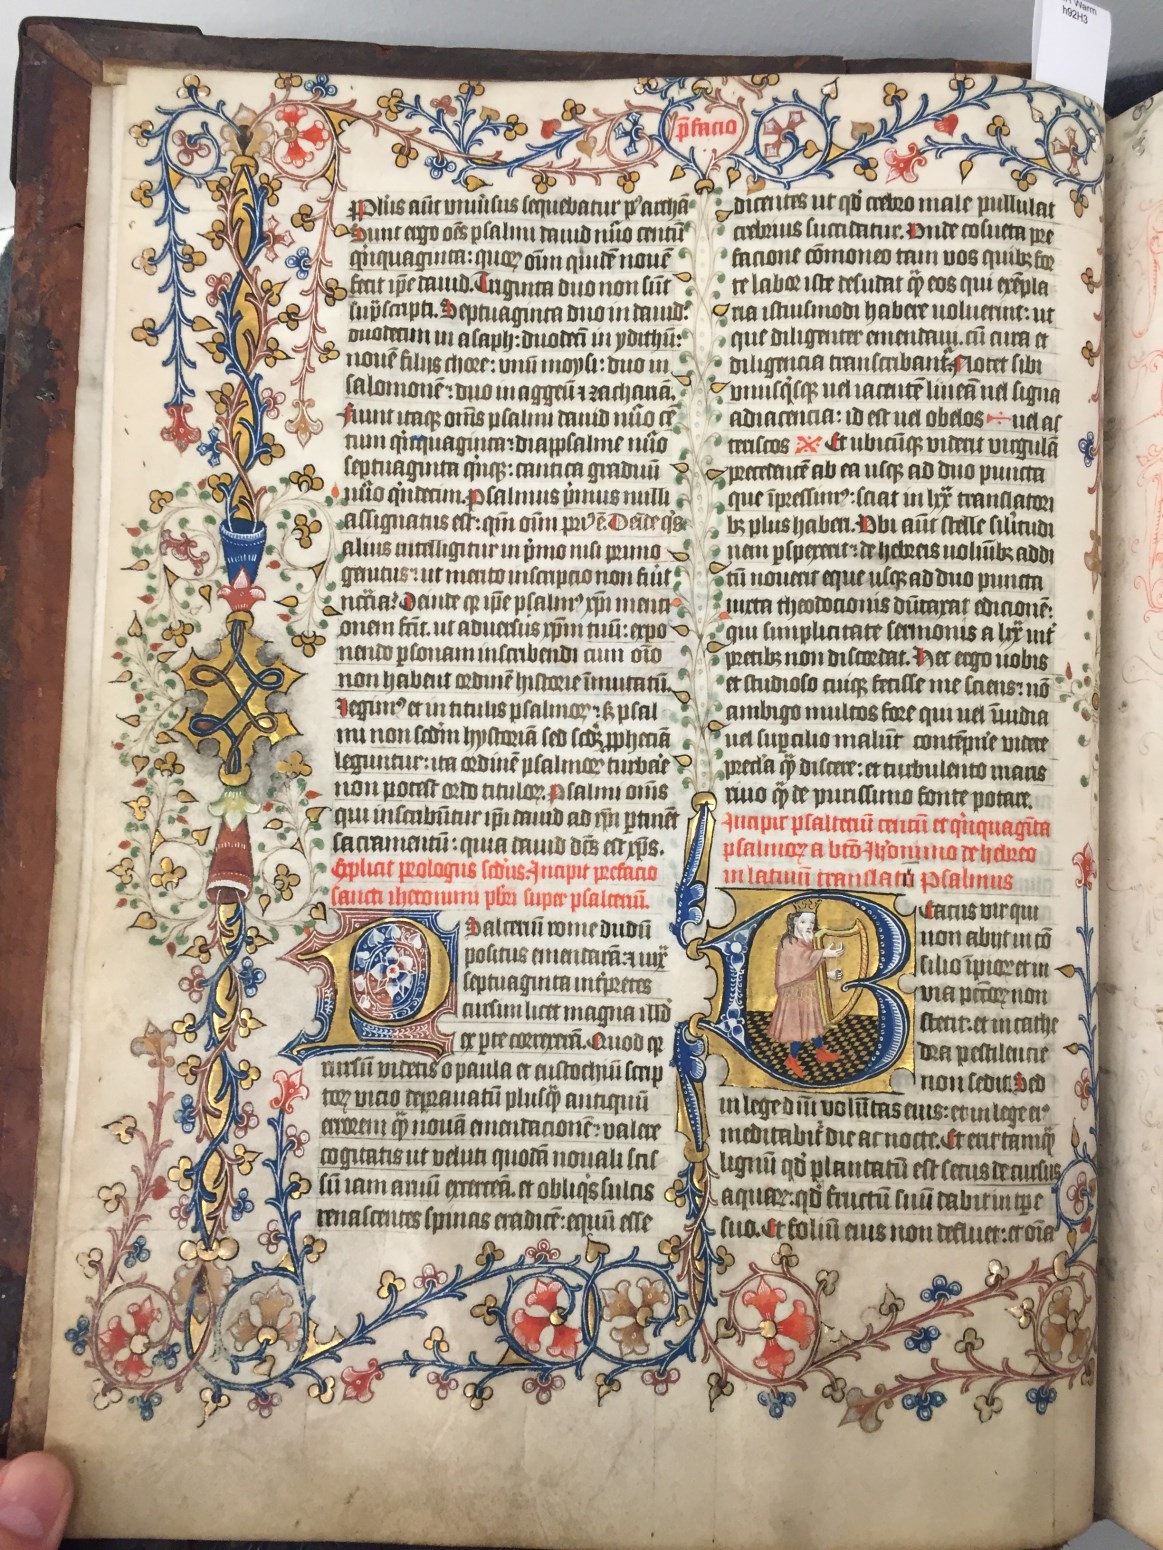 h92H3
p̄facio
Sunt ergo oēs psalmi dauid nūo centū
quīquaginta: quoꝝ oīm quidē nouē
fecit ip̄e dauid. Triginta duo non sūt
sup̄scripti. Septuaginta duo in dauid:
duodecim in asaph: duodecī in ydithū:
nouē filijs chore: vnū moysi: duo in
salomonē: duo in aggeū ⁊ zachariā.
Fiunt itaqꝫ om̄s psalmi dauid nūo cē
septuaginta quīqꝫ: cantica graduū
nūo qͥndecim. Psalmus pͥmus nulli
alius intelligitur in pͥmo nisi primo
genitus: ut merito inscriptio non fūit
onem fecit. ut aduersus xp̄m tuū: expo
nendo ꝑsonam inscribendi cum oīo
non habent ordinē historie īmutatū.
Legimꝰ et in titulis psalmoꝝ
mi non scd̄m hystoriā sed scd̄ꝫ ꝓpheciā
leguntur: ita ordinē psalmoꝝ turbare
non potest ordo tituloꝝ. Psalmi om̄s
qui inscribūtur ip̄i dauid ad xp̄i ꝑtinēt
sacramentū: quia dauid dc̄s est xp̄s.
Explicit prologus scd̄us. Incipit prefacio
sancti iheronimi pb̄ri super psalteriū.
Psalteriū rome dudū
positus emendarā: ⁊ iuxͣ
septuaginta int̄pretes
cursim licet magna illd̄
ex ꝑte correxerā. Quod qꝫ
rursū videtis o paula et eustochiū scrip
toꝝ vicio deprauatū plusqͣꝫ antiquū
errorem qͣꝫ nouā emendacionē: valere
cogitatis ut veluti quodā nouali scis
sū iam aruū exercerā. et obliqͥs sulcis
renascentes spinas eradicē: equū esse
dicentes ut qd̄ crebro male pullulat
crebrius succidatur. Vnde cōsueta pre
facione cōmoneo tam vos quibꝫ for
te labor iste desudat qͣꝫ eos qui exēpla
ria istiusmodi habere voluerint: ut
que diligenter emendaui. cū cura et
diligencia transcribant. Notet sibi
vnusqͥsqꝫ uel iacentē lineā uel signa
radiancia: id est uel obelos ÷ uel as
teriscos ※ Et ubicūqꝫ viderit virgulā
precedentē ab ea usqꝫ ad duo puncta
que īpressimꝰ: sciat in lxx translatori
bꝫ plus haberi. Vbi aūt stelle sil̄itudi
nem ꝑspexerit: de hebreis uolūībꝫ addi
tū nouerit eque usqꝫ ad duo puncta
iuxta theodocionis dūtaxat edicionē:
qui simplicitate sermonis a lxx int̄
pretibꝫ non discordat. Hec ergo uobis
et studioso cuiqꝫ fecisse me sciens: nō
ambigo multos fore qui uel īuidia
uel sup̄cilio maliūt contēpne videre
precl̄a qͣꝫ discere: et turbulento magis
riuo qͣꝫ de purissimo fonte potare.
Incipit psalteriū centū et qͥnquagīta
psalmoꝝ a bt̄o Ih̄onimo de hebreo
in latinū translatū Psalmus
Beatus vir qui
non abijt in cō
silio īpioꝝ et in
via pct̄oꝝ non
stetit: et in cathe
dra pestilencie
non sedit. Sed
in lege dn̄i volūtas eius: et in lege eiꝰ
meditabit̄ die ac nocte. Et erit tamqͣꝫ
lignū qd̄ plantatū est secus decursus
aquaꝝ: qd̄ fructū suū dabit in tp̄e
suo. Et foliū eius non defluet: et oīa